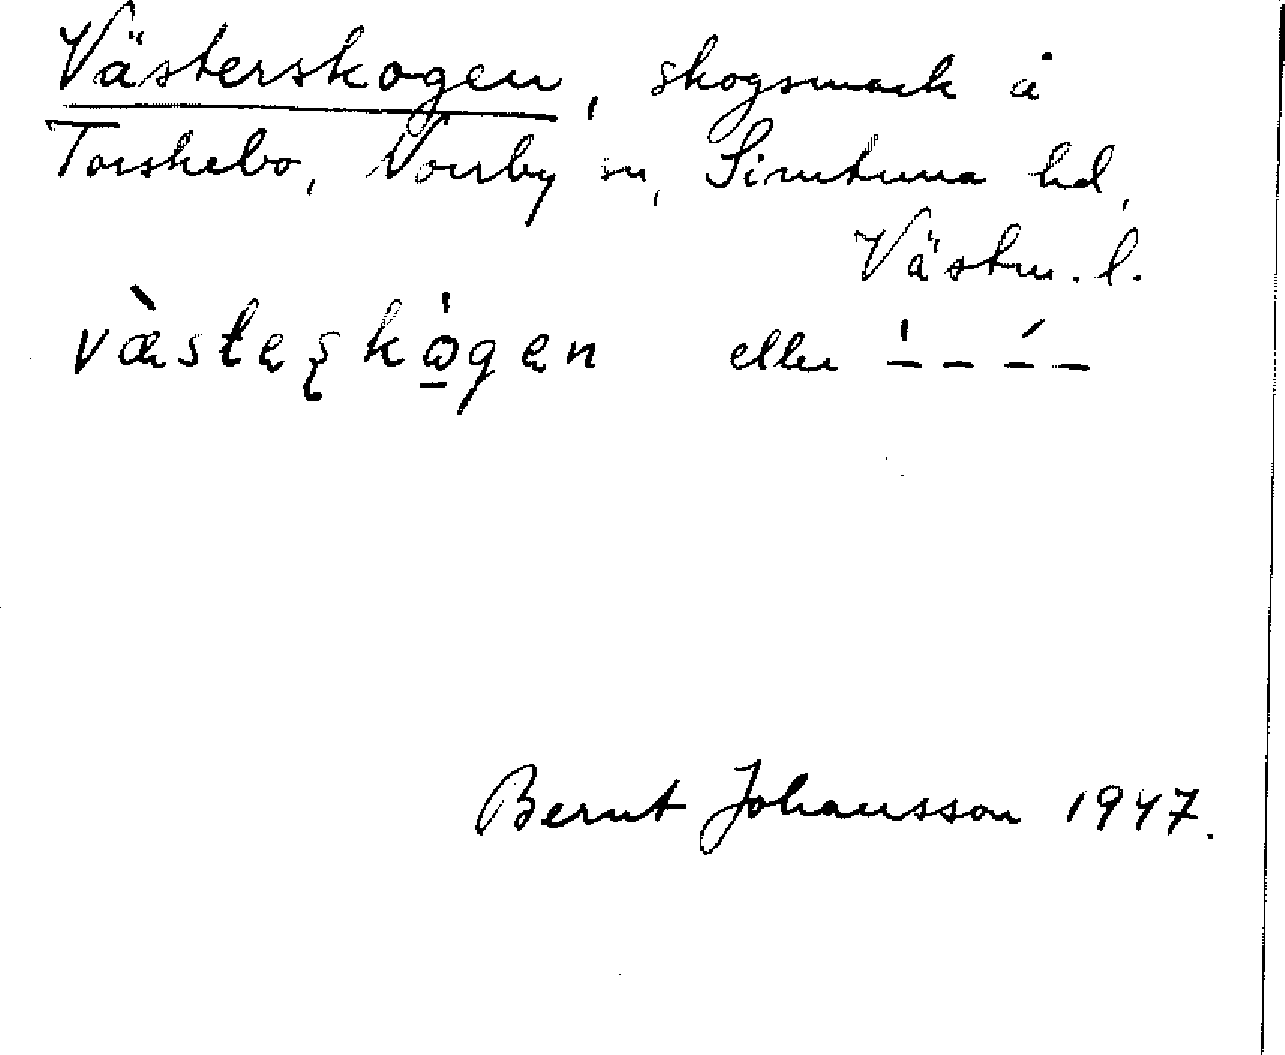 Västerskogen, skogsmark å
Torskebo, Norrby sn, Simtuna hd,
Västm. l.
væ̀steʂkògen eller '– – ´– –
Bernt Johansson 1947.